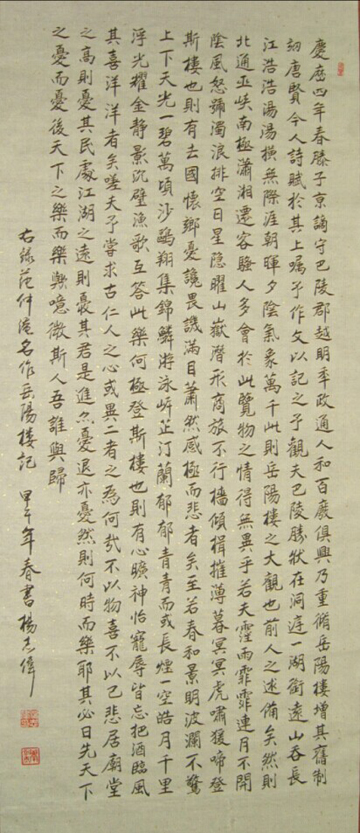 慶曆四年春滕子京謫守巴陵郡越明年政通人和百廢俱興乃重脩岳陽樓增其舊制
刻唐賢今人詩賦於其上囑予作文以記之予觀夫巴陵勝狀在洞庭一湖銜遠山吞長
江浩浩湯湯橫無際涯朝暉夕陰氣象萬千此則岳陽樓之大觀也前人之述備矣然則
北通巫峽南極瀟湘遷客騷人多會於此覽物之情得無異乎若夫霪雨霏霏連月不開
陰風怒號濁浪排空日星隱耀山嶽潛形商旅不行檣傾楫摧薄暮冥冥虎嘯猿啼登
斯樓也則有去國懷鄉憂讒畏譏滿目蕭然感極而悲者矣至若春和景明波瀾不驚
上下天光一碧萬頃沙鷗翔集錦鱗游泳岸芷汀蘭郁郁青青而或長煙一空皓月千里
浮光耀金靜影沉璧漁歌互答此樂何極登斯樓也則有心曠神怡寵辱皆忘把酒臨風
其喜洋洋者矣嗟夫予嘗求古仁人之心或異二者之為何哉不以物喜不以己悲居廟堂
之高則憂其民處江湖之遠則憂其君是進亦憂退亦憂然則何時而樂耶其必曰先天下
之憂而憂後天下之樂而樂歟噫微斯人吾誰與歸
右錄范仲淹名作岳陽樓記 甲午年春書楊志偉